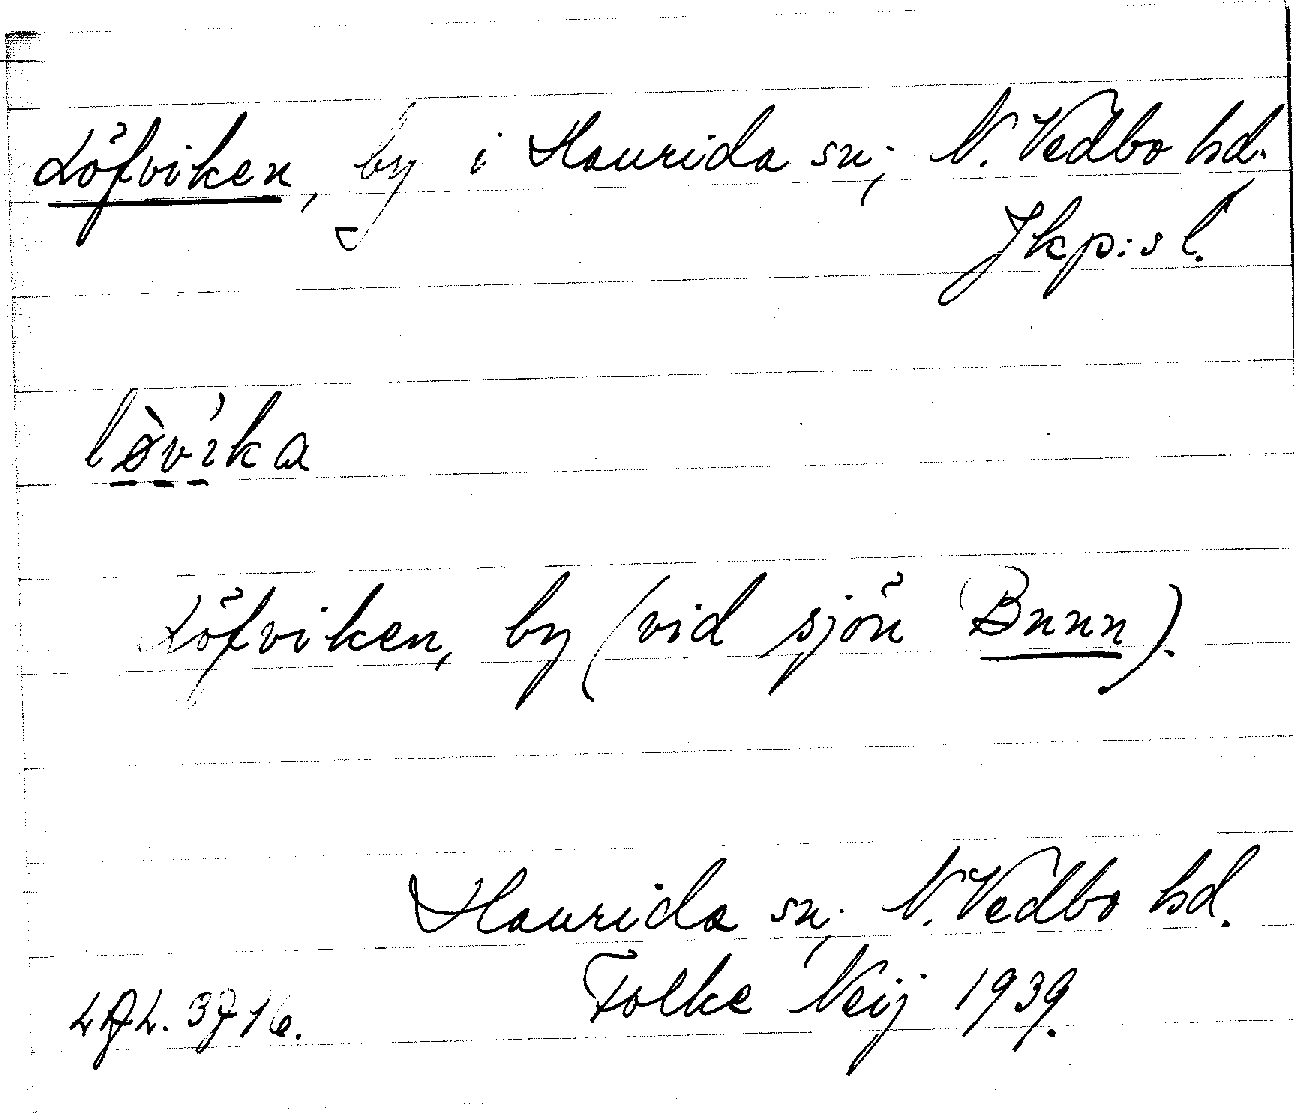 Löfviken, by i Haurida sn; N. Vedbo hd.
Jkp:s l.
lø̀víka
Löfviken, by (vid sjön Bunn).
Haurida sn; N. Vedbo hd.
Folke Neij 1939.